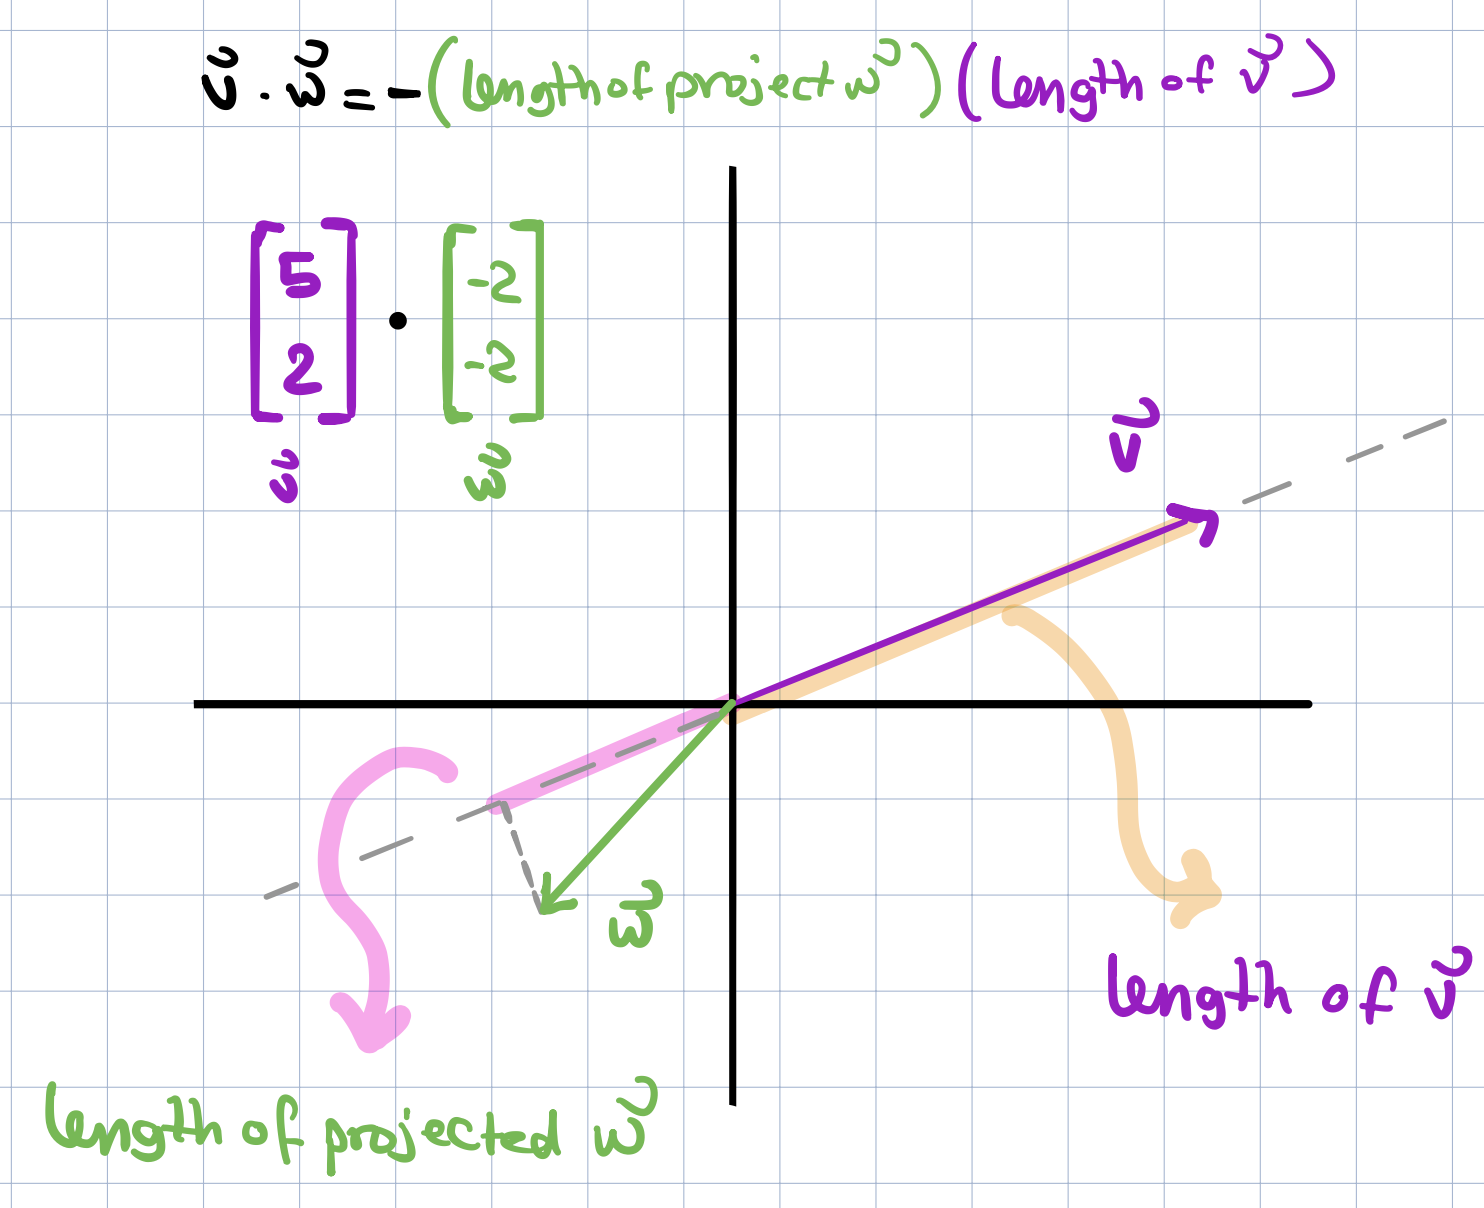 v⃗ · w⃗ = -(length of project w⃗)(length of v⃗)
[5 2] · [-2 -2]
v⃗ w⃗
v⃗
w⃗
length of v⃗
length of projected w⃗